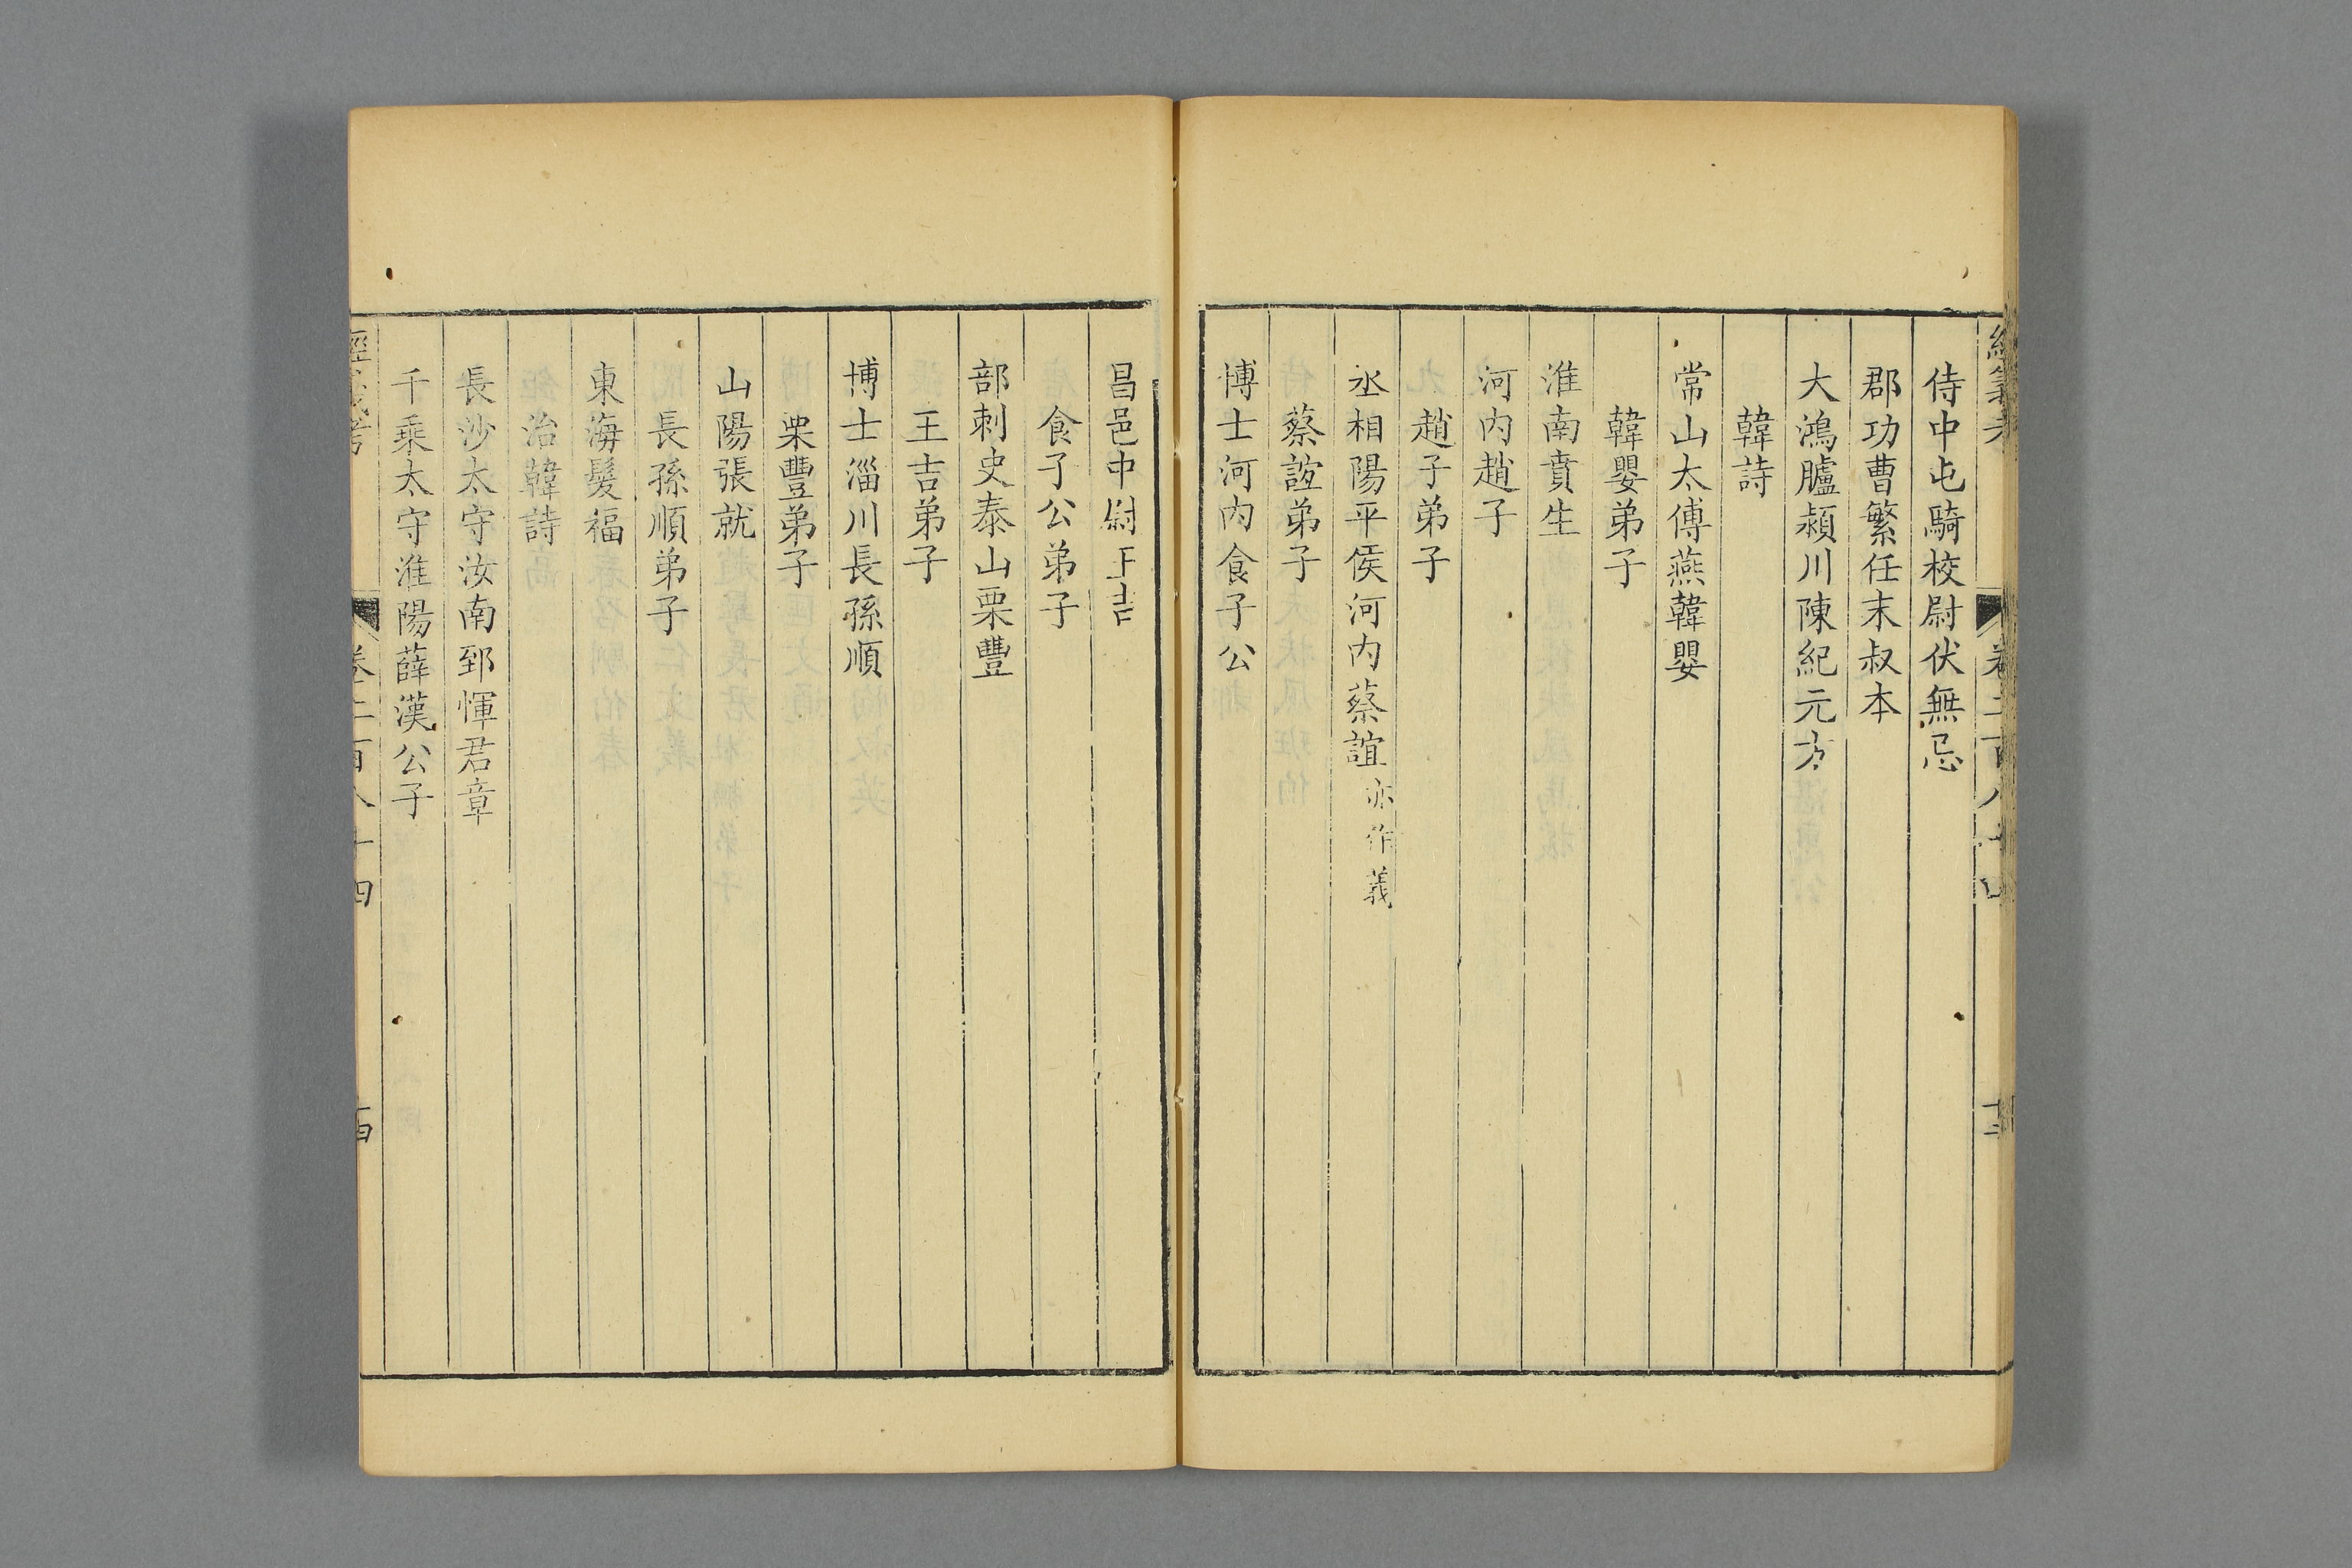 侍中屯騎校尉伏無忌
郡功曹繁任末叔本
大鴻臚潁川陳紀元方
韓詩
常山太傅燕韓嬰
韓嬰弟子
淮南賁生
河內趙子
趙子弟子
丞相陽平侯河內蔡誼亦作義
蔡誼弟子
博士河內食子公
昌邑中尉王吉
食子公弟子
部刺史泰山栗豐
王吉弟子
博士淄川長孫順
栗豐弟子
山陽張就
長孫順弟子
東海髮福
治韓詩
長沙太守汝南郅惲君章
千乘太守淮陽薛漢公子
經義考 卷二百八十四